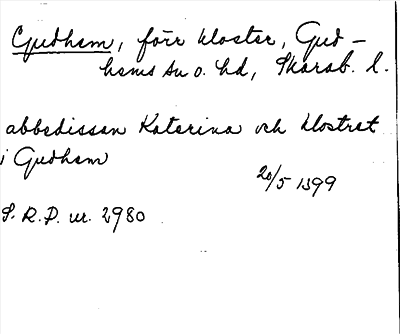 Gudhem, förr kloster, Gud-
hems sn o. hd, Skarab. l.
abbedissan Katerina och klostret
i Gudhem
20/5 1399
S. R. P. nr. 2980